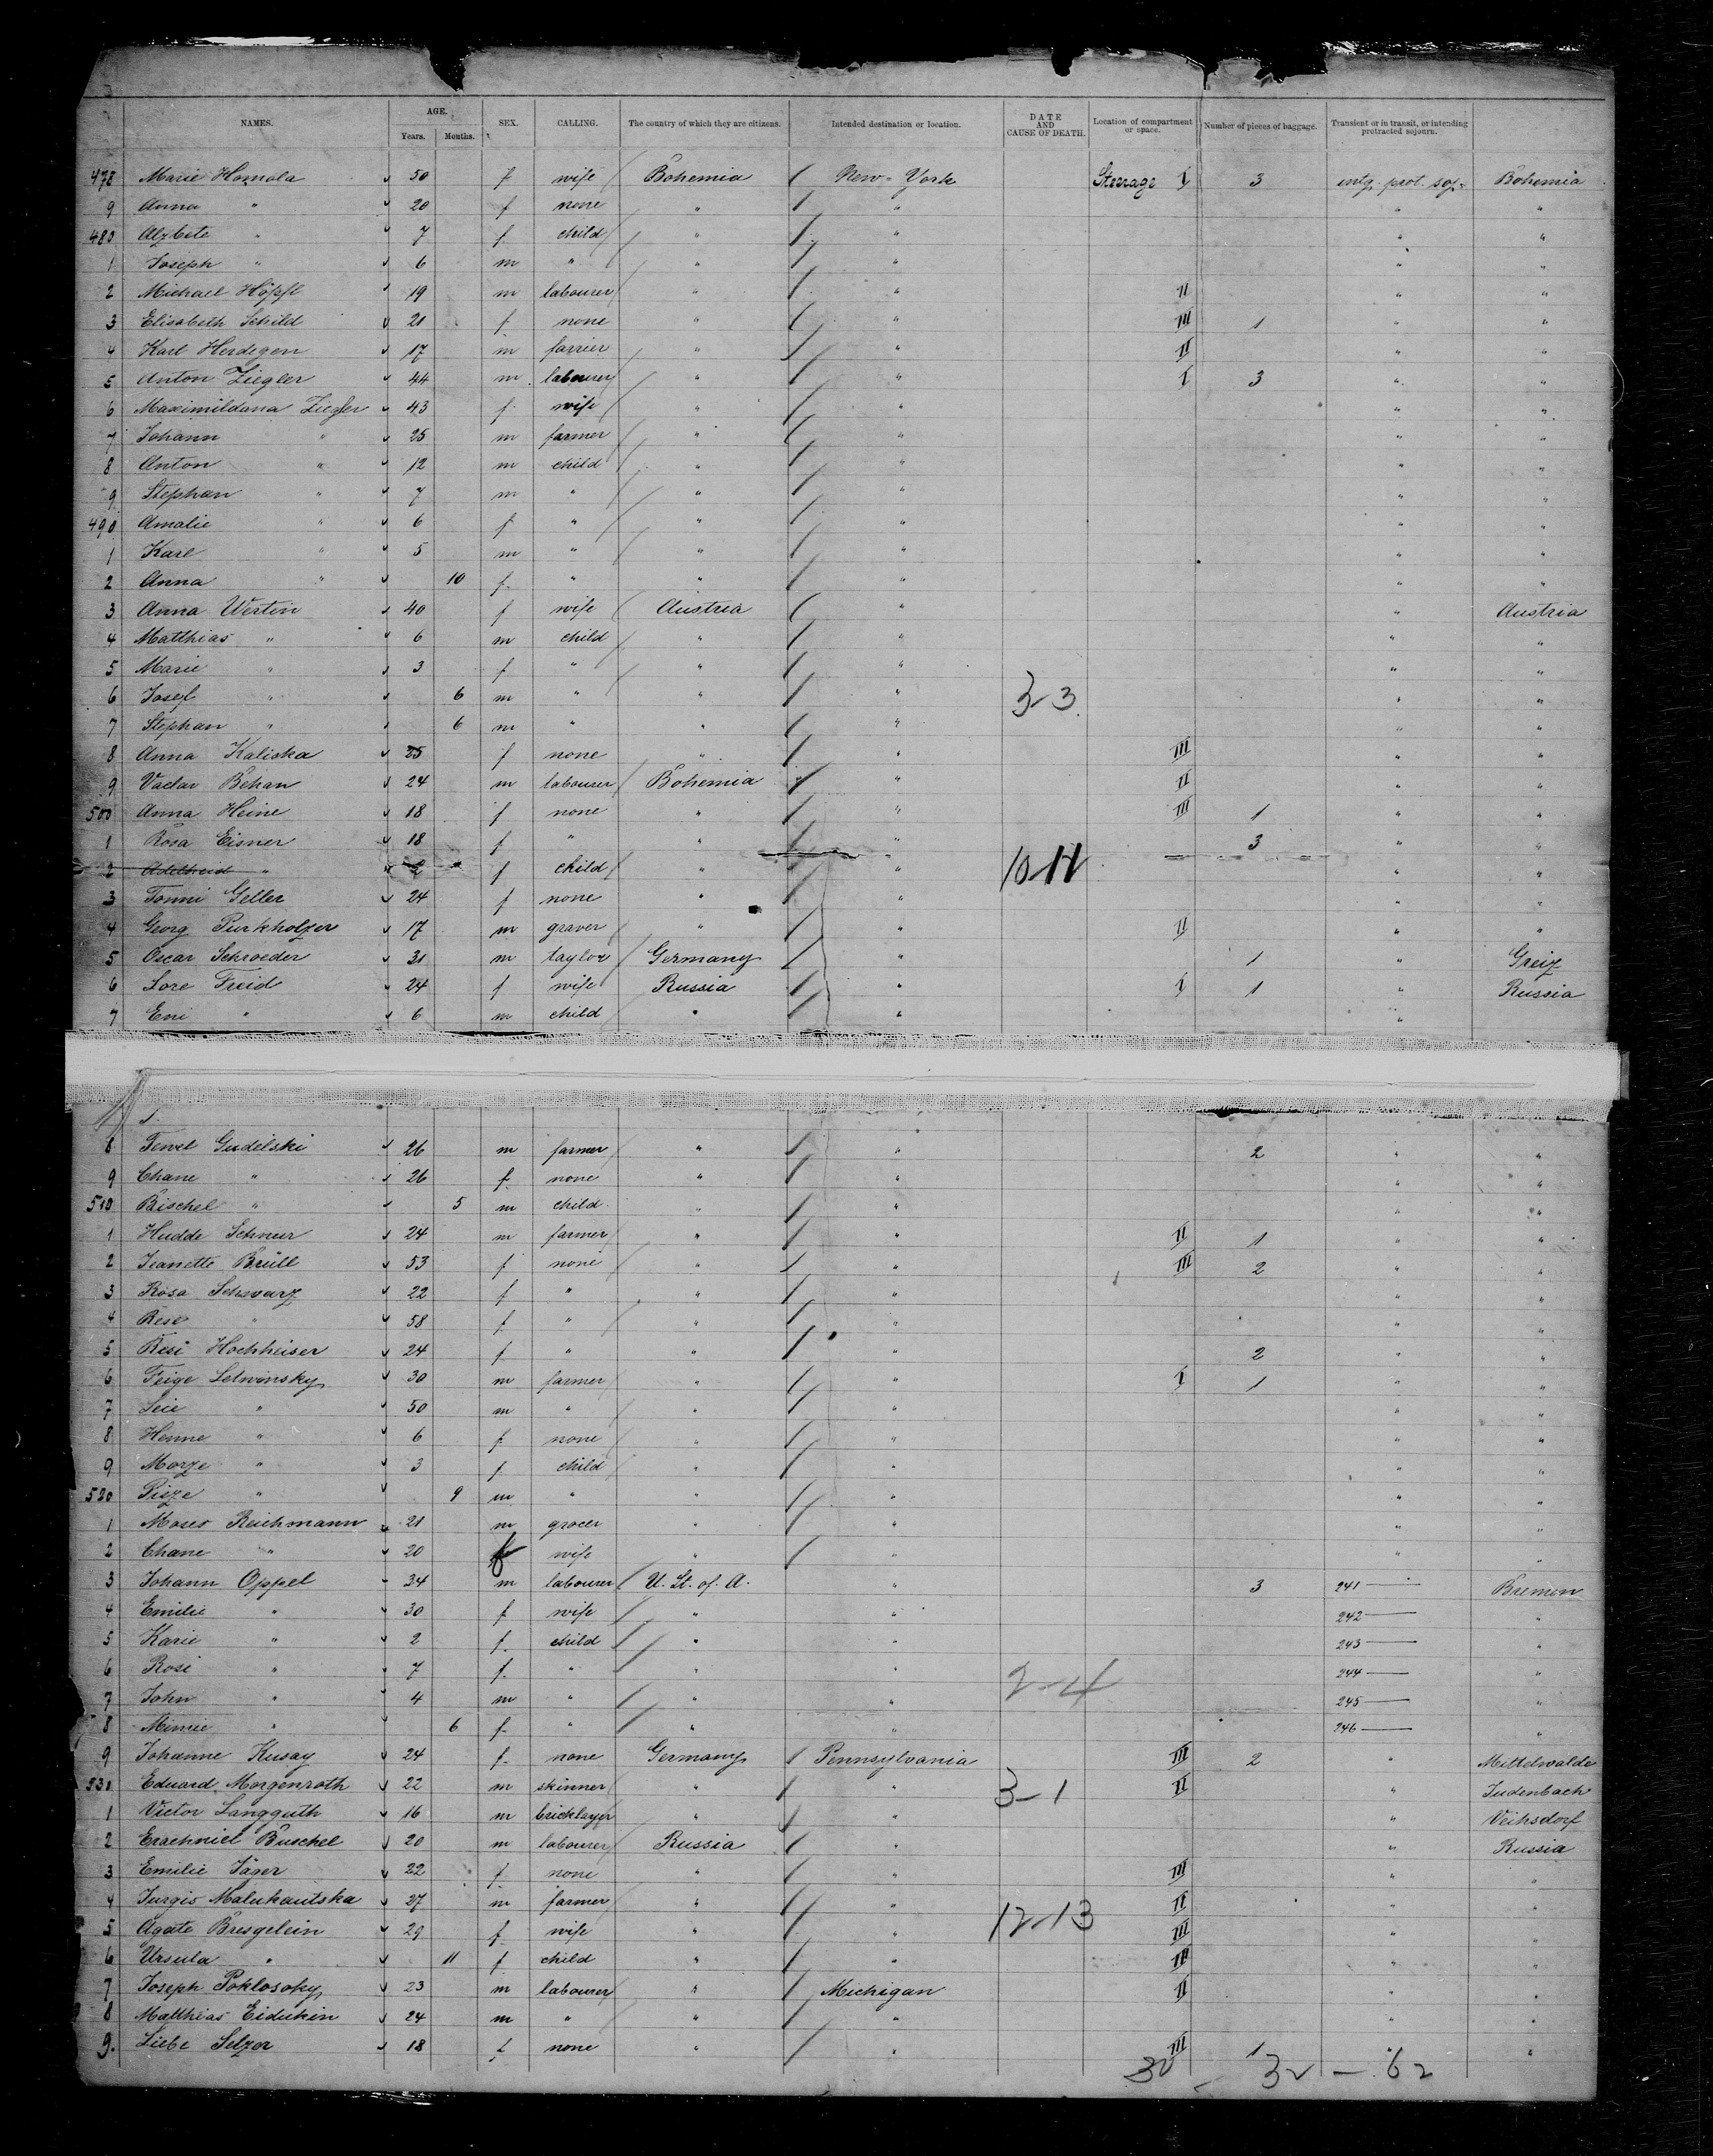 NAMES. AGE. Years. Months. SEX. CALLING. The country of which they are citizens. Intended destination or location. DATE AND CAUSE OF DEATH. Location of compartment or space. Number of pieces of baggage. Transient or in transit, or intending protracted sojourn.
478 Marie Homola 50 f wife Bohemia New-York Steerage I 3 intg. prot. soj. Bohemia
9 Anna " 20 f none " " " "
480 Alzbete " 7 f child " " " "
1 Joseph " 6 m " " " " "
2 Michael Höpfl 19 m labourer " " II " "
3 Elisabeth Schild 21 f none " " III 1 " "
4 Karl Herdegen 17 m farrier " " II " "
5 Anton Ziegler 44 m labourer " " I 3 " "
6 Maximildana Ziegler 43 f wife " " " "
7 Johann " 25 m farmer " " " "
8 Anton " 12 m child " " " "
9 Stephan " 7 m " " " " "
490 Amalie " 6 f " " " " "
1 Karl " 5 m " " " " "
2 Anna " 10 f " " " " "
3 Anna Westin 40 f wife Austria " " Austria
4 Matthias " 6 m child " " " "
5 Marie " 3 f " " " " "
6 Josef " 6 m " " " 3-3 " "
7 Stephan " 6 m " " " " "
8 Anna Kaliska 25 f none " " III " "
9 Vaclav Behan 24 m labourer Bohemia " II " "
500 Anna Heine 18 f none " " III 1 " "
1 Rosa Eisner 18 f " " " 3 " "
2 Adelheid " 2 f child " " 10-11 " "
3 Tonni Geller 24 f none " " " "
4 Georg Purkholzer 17 m graver " " II " "
5 Oscar Schroeder 31 m taylor Germany " 1 " Greiz
6 Lore Freid 24 f wife Russia " I 1 " Russia
7 Eni " 6 m child " " "
8 Tewel Gudelski 26 m farmer " " 2 " "
9 Chane " 26 f none " " " "
510 Bischel " 5 m child " " " "
1 Hudde Schneur 24 m farmer " " II 1 " "
2 Jeanette Brüll 53 f none " " III 2 " "
3 Rosa Schwarz 22 f " " " " "
4 Rese " 58 f " " " " "
5 Resi Hochheiser 24 f " " " 2 " "
6 Feige Selwinsky 30 m farmer " " I 1 " "
7 Leie " 50 m " " " " "
8 Henne " 6 f none " " " "
9 Morze " 3 f child " " " "
520 Pisze " 9 m " " " " "
1 Moses Reichmann 21 m grocer " " " "
2 Chane " 20 f wife " " " "
3 Johann Oppel 34 m labourer U. St. of. A. " 3 241 Bremen
4 Emilie " 30 f wife " " 242 "
5 Karie " 2 f child " " 243 "
6 Rosi " 7 f " " " 2-4 244 "
7 John " 4 m " " " 245 "
8 Minnie " 6 f " " " 246 "
9 Johanne Kusay 24 f none Germany Pennsylvania III 2 " Mittelwalde
530 Eduard Morgenroth 22 m skinner " " 3-1 II " Judenbach
1 Victor Langguth 16 m bricklayer " " " Veihsdorf
2 Erachniel Buschel 20 m labourer Russia " " Russia
3 Emilie Jäger 22 f none " " III " "
4 Jurgis Malukautska 27 m farmer " " II " "
5 Agate Bresgelein 29 f wife " " 12-13 III " "
6 Ursula " 11 f child " " III " "
7 Joseph Poklosoky 23 m labourer " Michigan II " "
8 Matthias Eidukin 24 m " " " " "
9. Liebe Selzer 18 f none " " III 1 " "
30 - 32 - 62